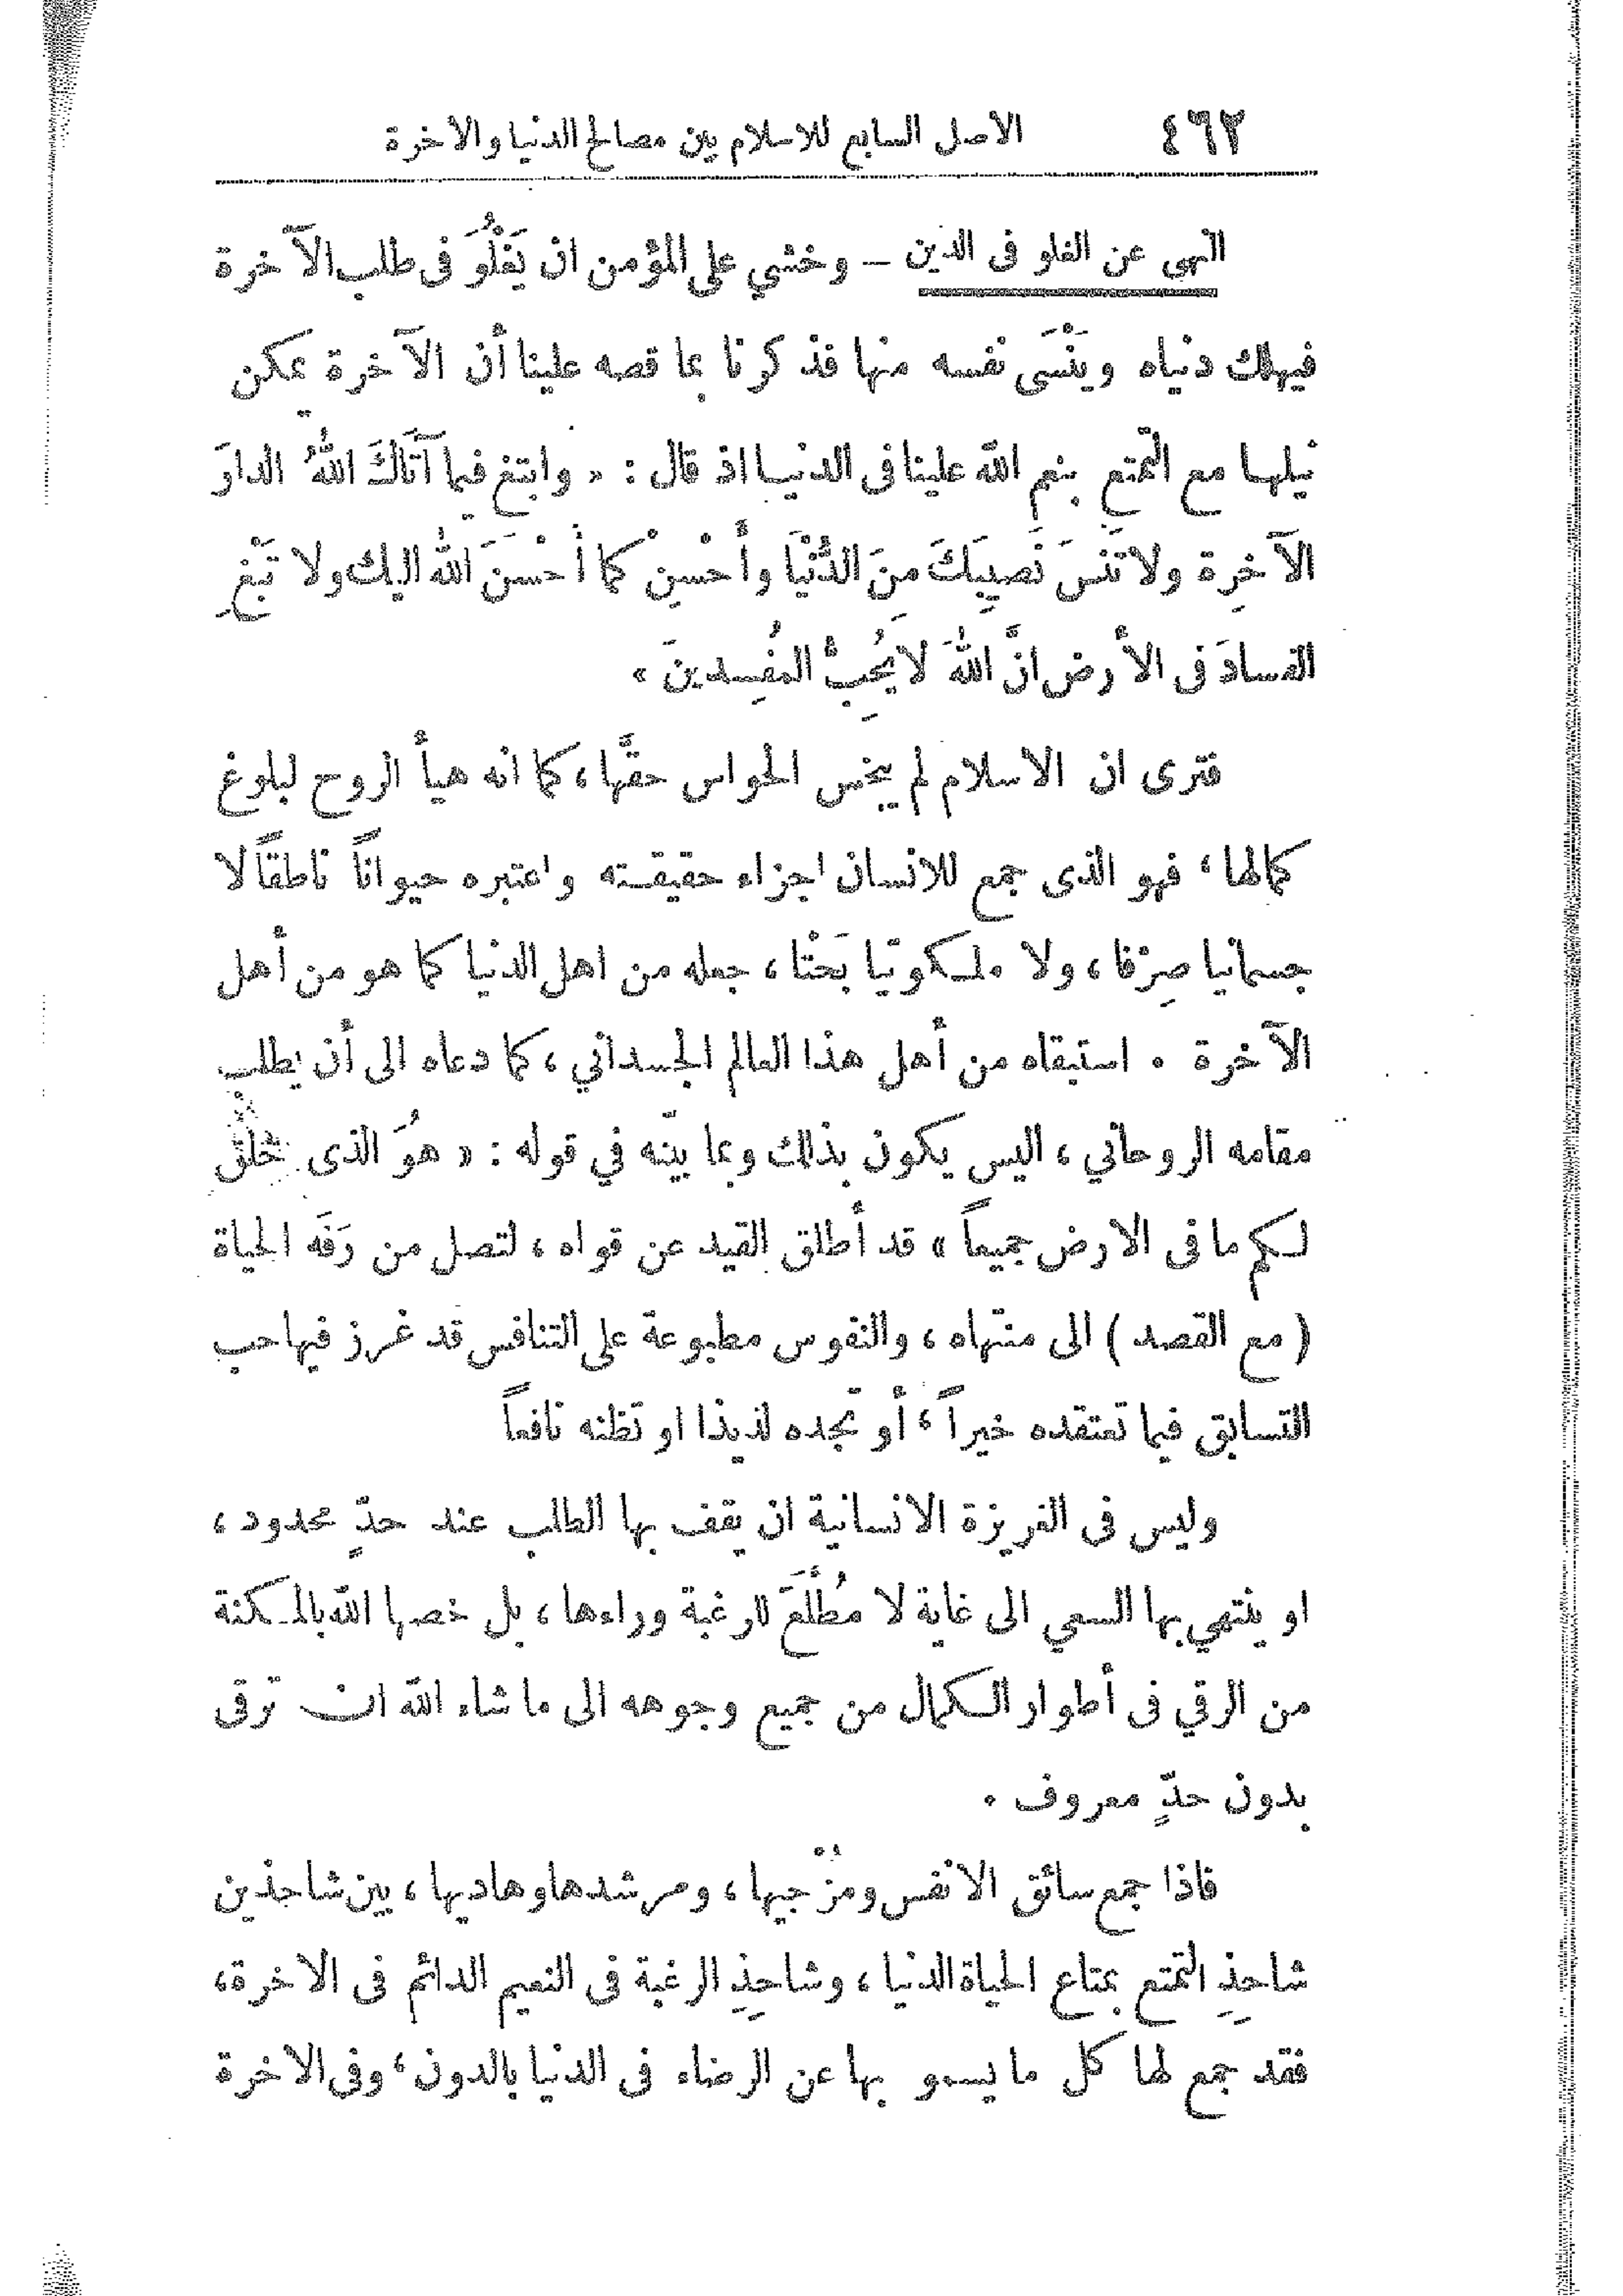 ٤٦٢ الاصل السابع للاسلام بين مصالح الدنيا والاخرة
النهي عن الغلو فى الدين — وخشي على المؤمن ان يَغْلُوَ فى طلب الآخرة
فيهلك دنياه ويَنْسَى نفسه منها فذكرنا بما قصه علينا أن الآخرة يمكن
نيلها مع التمتع بنعم الله علينا فى الدنيا اذ قال : « وابتغ فيما آتَاكَ اللهُ الدارَ
الآخِرة ولا تَنْسَ نَصيِبَكَ مِنَ الدُّنْيَا وأحْسِنْ كما أحْسَنَ الله اليك ولا تَبْغِ
الفسادَ فى الأرض انَّ اللهَ لا يُحِبُّ المُفِسدِينَ »
فترى ان الاسلام لم يبخس الحواس حقَّها ، كما انه هيأ الروح لبلوغ
كمالها ، فهو الذى جمع للانسان اجزاء حقيقته واعتبره حيواناً ناطقاً لا
جسمانيا صِرْفا ، ولا ملكوتيّا بَحْتا ، جعله من اهل الدنيا كما هو من أهل
الآخرة . استبقاه من أهل هذا العالم الجسداني ، كما دعاه الى أن يطلب
مقامه الروحاني ، اليس يكون بذلك وبما بيّنه في قوله : « هُوَ الذى خلق
لكم ما فى الارض جميعاً » قد أطلق القيد عن قواه ، لتصل من رَفَه الحياة
( مع القصد ) الى منتهاه ، والنفوس مطبوعة على التنافس قد غرز فيها حب
التسابق فيما تعتقده خيراً ، أو تجده لذيذا او تظنه نافعاً
وليس فى الغريزة الانسانية ان يقف بها الطلب عند حدٍّ محدود ،
او ينتهي بها السعي الى غاية لا مُطَّلَعَ للرغبة وراءها ، بل خصها الله بالمكنة
من الرقي فى أطوار الكمال من جميع وجوهه الى ما شاء الله ان ترقى
بدون حدٍّ معروف .
فاذا جمع سائق الانفس ومُزْجيها ، ومرشدها وهاديها ، بين شاحذين
شاحذِ التمتع بمتاع الحياة الدنيا ، وشاحذِ الرغبة فى النعيم الدائم فى الاخرة ،
فقد جمع لها كل ما يسمو بها عن الرضاء فى الدنيا بالدون ، وفى الاخرة